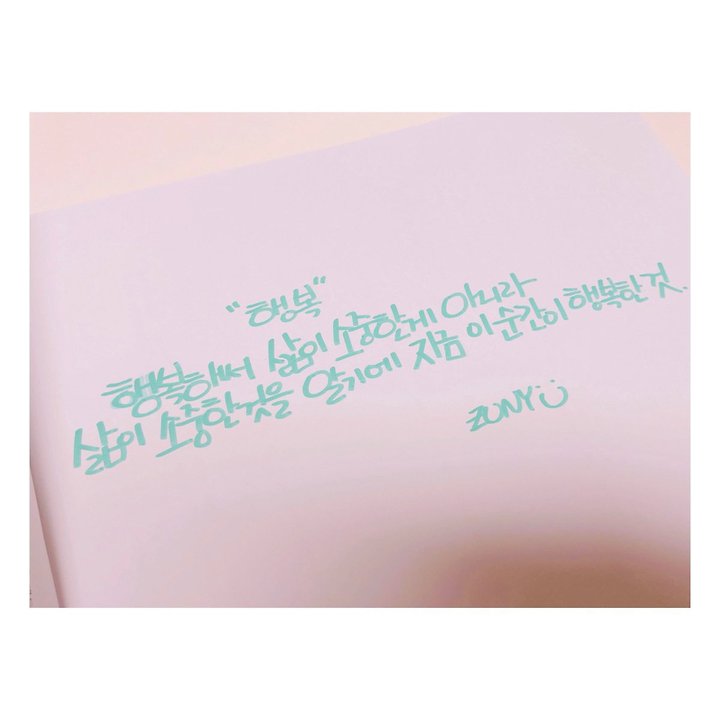 "행복"
행복해서 삶이 소중한게 아니라
삶이 소중한것을 알기에 지금 이 순간이 행복한 것.
ZUNY